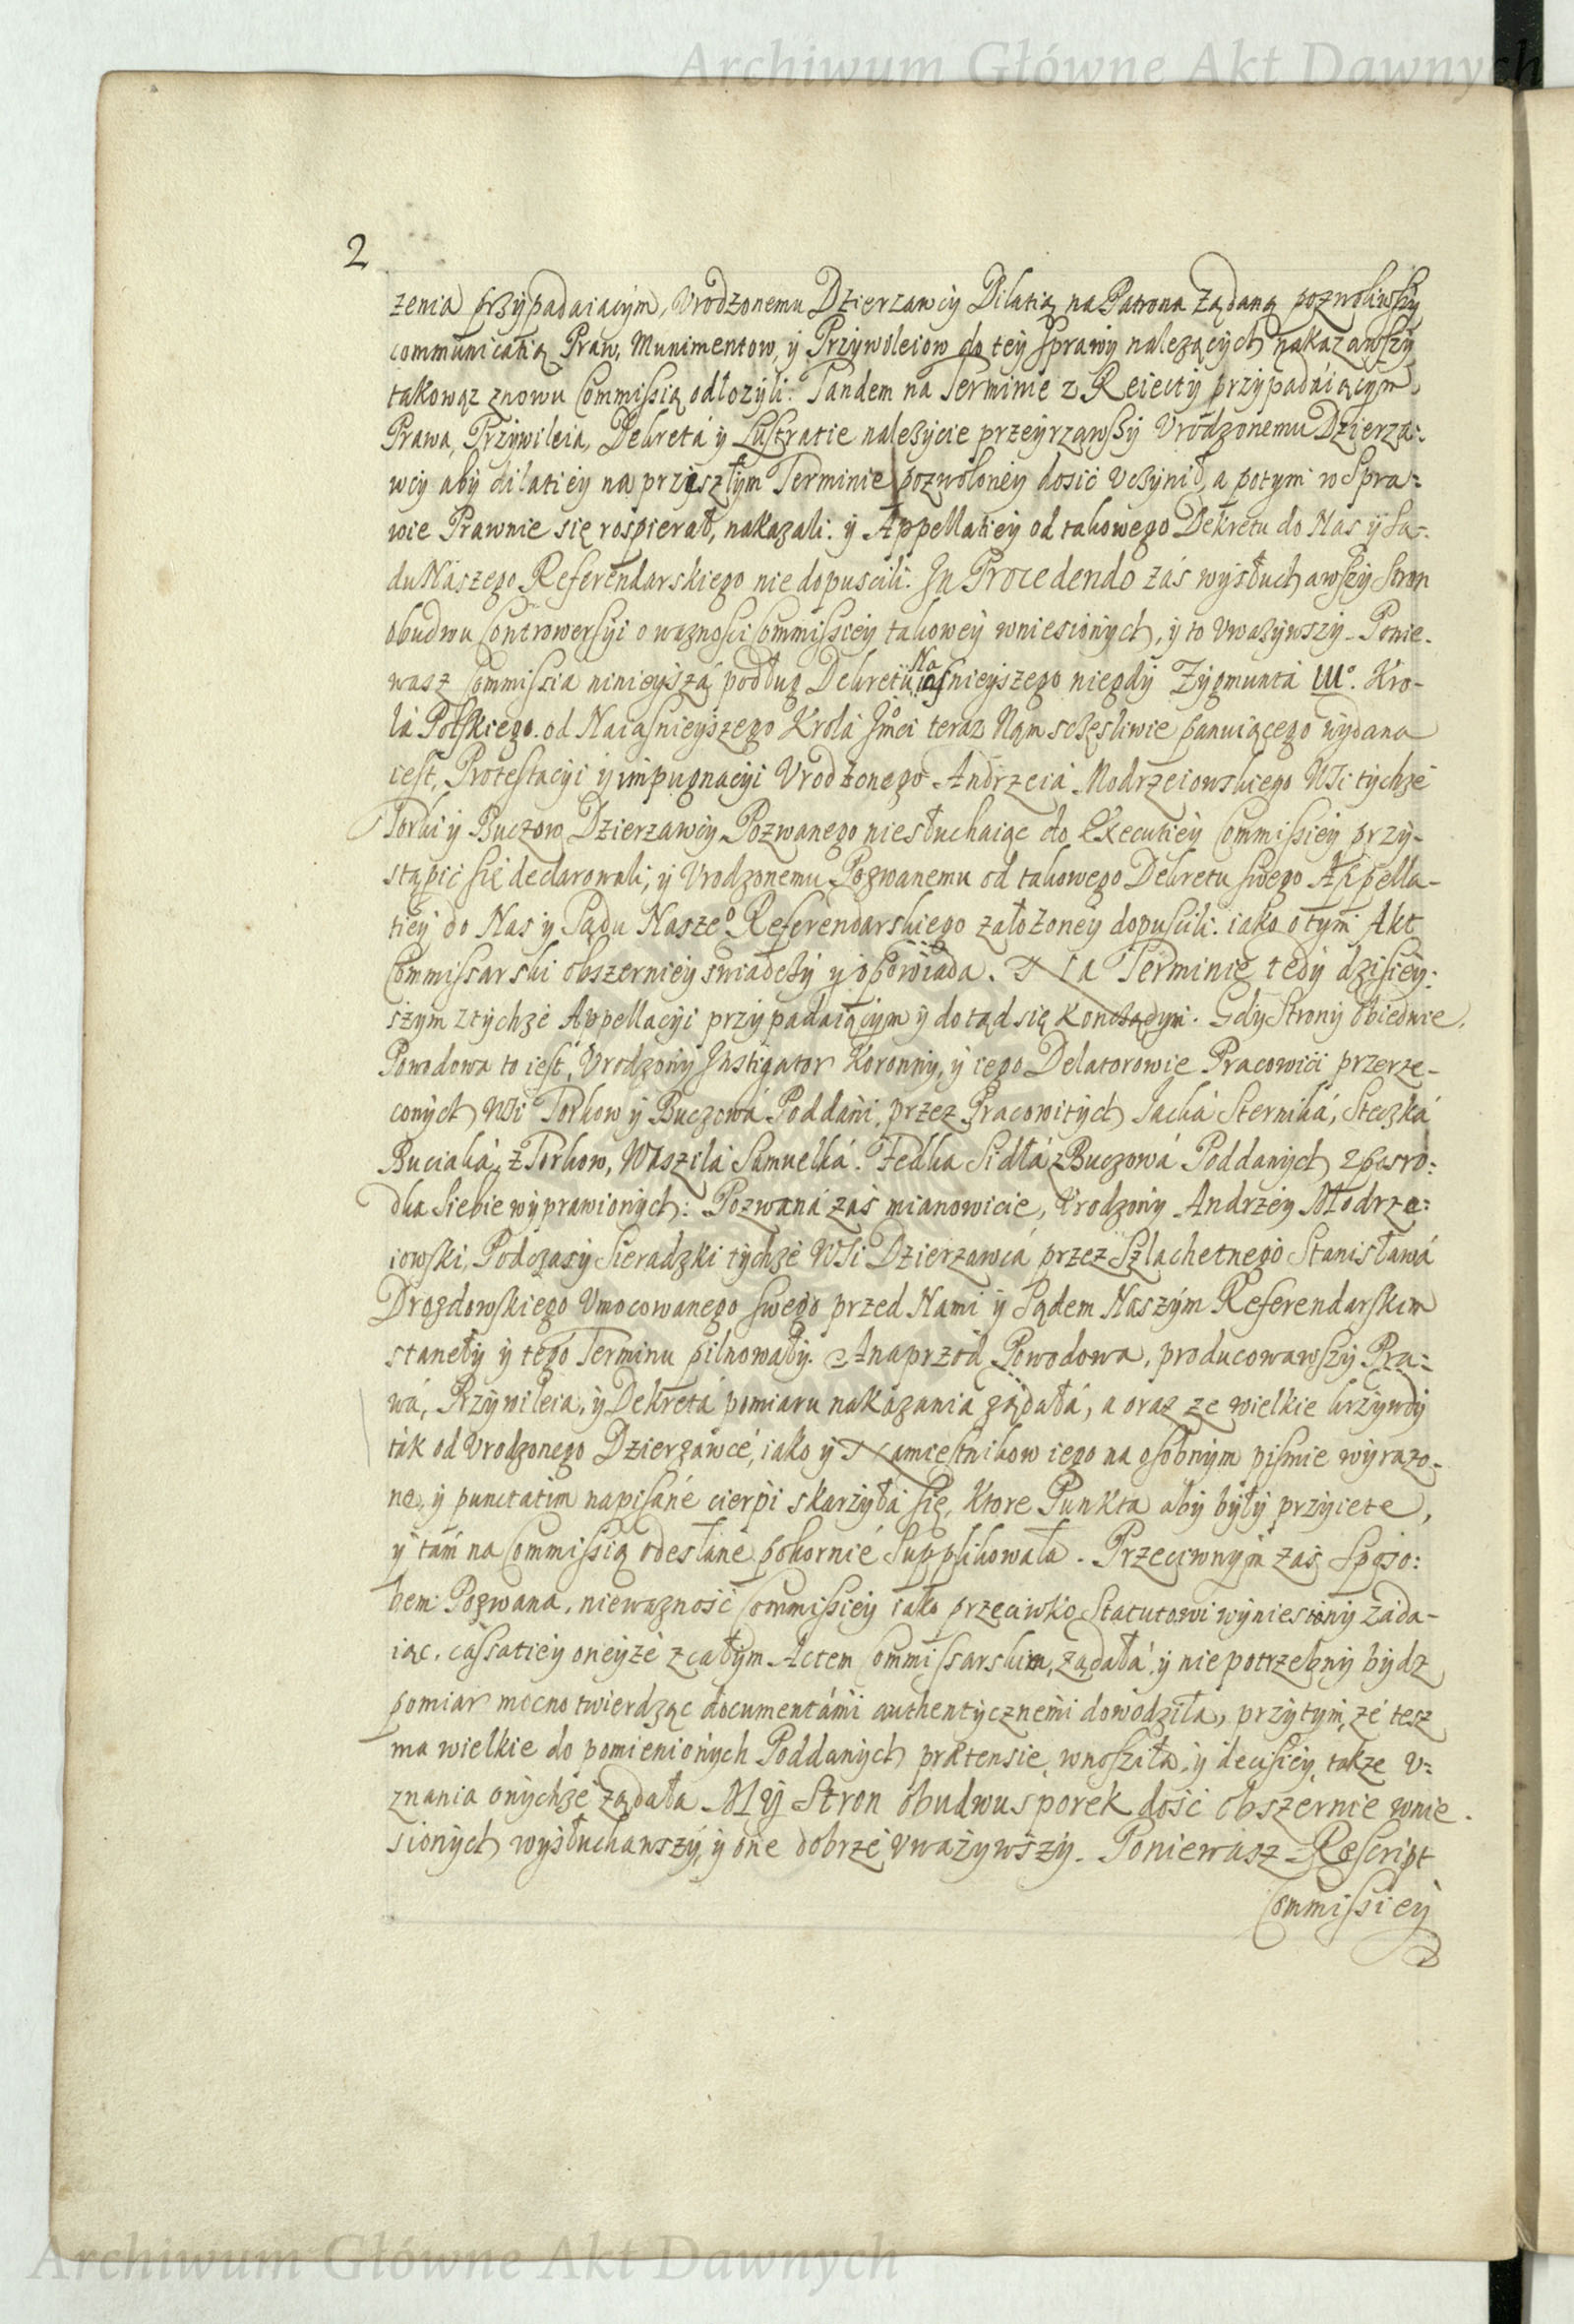 Archiwum Główne Akt Dawnych
2
zenia przypadaiącym, Vrodzonemu Dzierzawcy Dilatią na Patrona żądaną pozwoliwszy
communicatią Praw, Munimentow, y Przywileiow do tey Sprawy nalezących nakazawszy
takowąz znowu Commissią odłozyli. Tandem na Terminie z Reiecty przypadaiącym,
Prawa, Przywileia, Dekretá y Lustratie nalezycie przeyrzawszy Vrodzonemu Dzierza:
wcy aby dilatiey na przyszłym Terminie pozwoloney dosić vczynił, a potym w Spra:
wie Prawnie się rospierał, nakazali. y Appellatiey od takowego Dekretu do Nas y Są:
du Naszego Referendarskiego nie dopuscili. In Procedendo zás wysłuchawszy Stron
obudwu Controwersyi o waznosci Commissiey takowey wniesionych, y to vwazywszy. Ponie-
wasz Commissia ninieyszá podług Dekretu Naiasnieyszego niegdy Zygmunta IIIº. Kro-
lá Polskiego. od Naiasnieyszego Krolá Jmci teraz Nąm sczęsliwie panuiącego wydana
iest, Protestacyi y impugnacyi Vrodzonego Andrzeiá Modrzeiowskiego WSi tychze
Torki y Buczow Dzierzawcy Pozwanego niesłuchaiąc do Executiey Commissiey przy-
stąpić się declarowali, y Vrodzonemu Pozwanemu od takowego Dekretu swego Appella-
tiey do Nas y Sądu Naszeº Referendarskiego załozoney dopuscili. iako o tym Akt
Commissarski obszerniey swiadczy y opowiada. Na Terminie tedy dzisiey:
szym z tychze Appellacyi przypadaiącym y dotąd się konczącym. Gdy Strony obiedwie.
Powodowa to iest, Vrodzony Instigator Koronny, y iego Delatorowie Pracowici przerze-
conych WSi Torkow y Buczowá Poddáni, przez Pracowitych Jacká Sterniká, Steczká
Buciaká z Torkow, Waszilá Samuelká. Fedka Sidłá z Buczowá Poddanych z posro:
dka siebie wyprawionych: Pozwaná zás mianowicie, Vrodzony Andrzey Modrze:
iowski, Podczaszy Sieradzki tychze WSi Dzierzawcá przez Szlachetnego Stanisławá
Drozdowskiego Vmocowanego swego przed Nami y Sądem Naszym Referendarskim
staneły y tego Terminu pilnowały. A naprzod Powodowa, producowawszy Pra:
wá, Przywileia, y Dekretá pomiaru nakazania ządałá, a oraz ze wielkie krzywdy
ták od Vrodzonego Dzierzawce, iako y Namiestnikow iego na osobnym pismie wyrazo-
ne, y punctatim napisáne cierpi skarzyłá się, Ktore Punkta aby były przyiete,
y tám na Commissią odesłáne pokornie supplikowała. Przeciwnym zás sposo:
bem Pozwana, niewaznosć Commissiey iako przeciwko Statutowi wyniesiony záda-
iąc. cassatiey oneyze z całym Actem Commissarskim, ządałá, y niepotrzebny bydz
pomiar mocno twierdząc documentámi authentycznemi dowodziła, przytym, ze tesz
ma wielkie do pomienionych Poddanych prætensie, wnosziła, y decisiey, takze v:
znania onychze ządała. My Stron obudwu sporek dość obszernie wnie.
sionych wysłuchawszy, y one dobrze vwazywszy. Poniewasz Rescript
Commissiey
Archiwum Główne Akt Dawnych